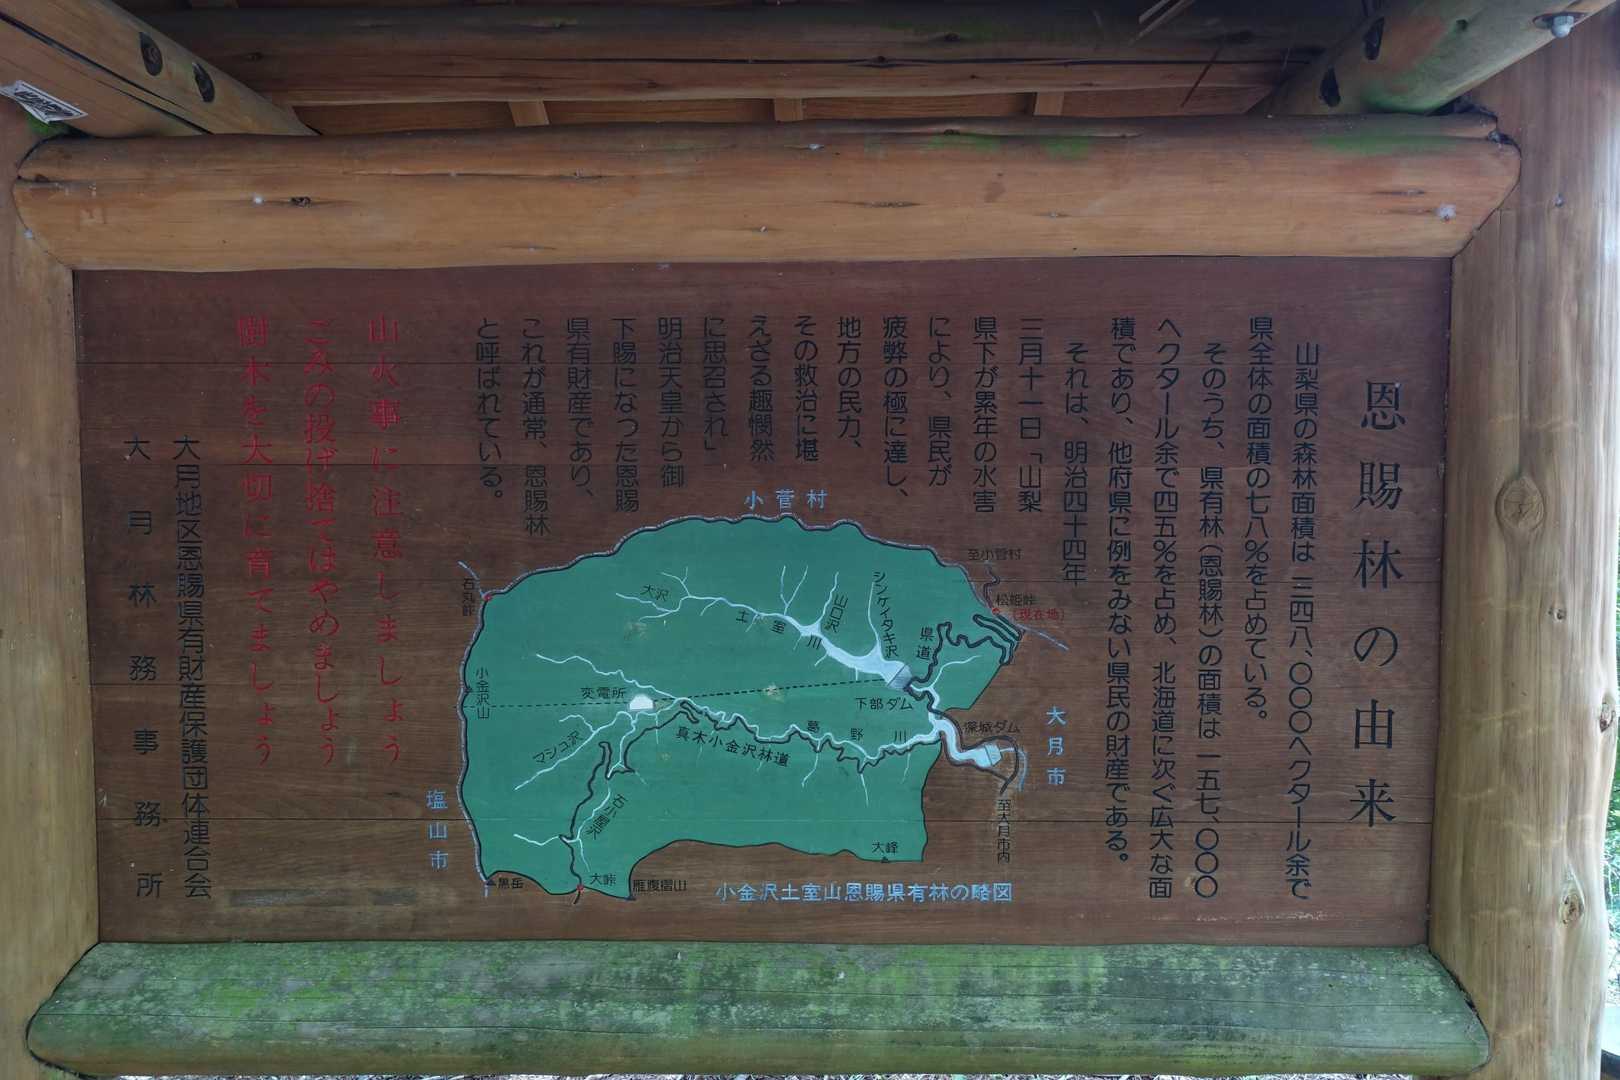 恩賜林の由来
山梨県の森林面積は 三四八、〇〇〇ヘクタール余で
県全体の面積の七八%を占めている。
そのうち、県有林(恩賜林)の面積は 一五七、〇〇〇
ヘクタール余で四五%を占め、北海道に次ぐ広大な面
積であり、他府県に例をみない県民の財産である。
それは、明治四十四年
三月十一日「山梨
県下が累年の水害
により、県民が
疲弊の極に達し、
地方の民力、
その救治に堪
えざる趣憫然
に思召され」
明治天皇から御
下賜になった恩賜
県有財産であり、
これが通常、恩賜林
と呼ばれている。
山火事に注意しましょう
ごみの投げ捨てはやめましょう
樹木を大切に育てましょう
大月地区恩賜県有財産保護団体連合会
大月林務事務所
小菅村
至小菅村
松姫峠
(現在地)
石丸峠
大沢
土室川
山口沢
シンケイタキ沢
県道
小金沢山
変電所
下部ダム
深城ダム
大月市
マシュ沢
真木小金沢林道
葛野川
塩山市
石小屋沢
至大月市内
大峰
黒岳
大峠
雁腹摺山
小金沢土室山恩賜県有林の略図